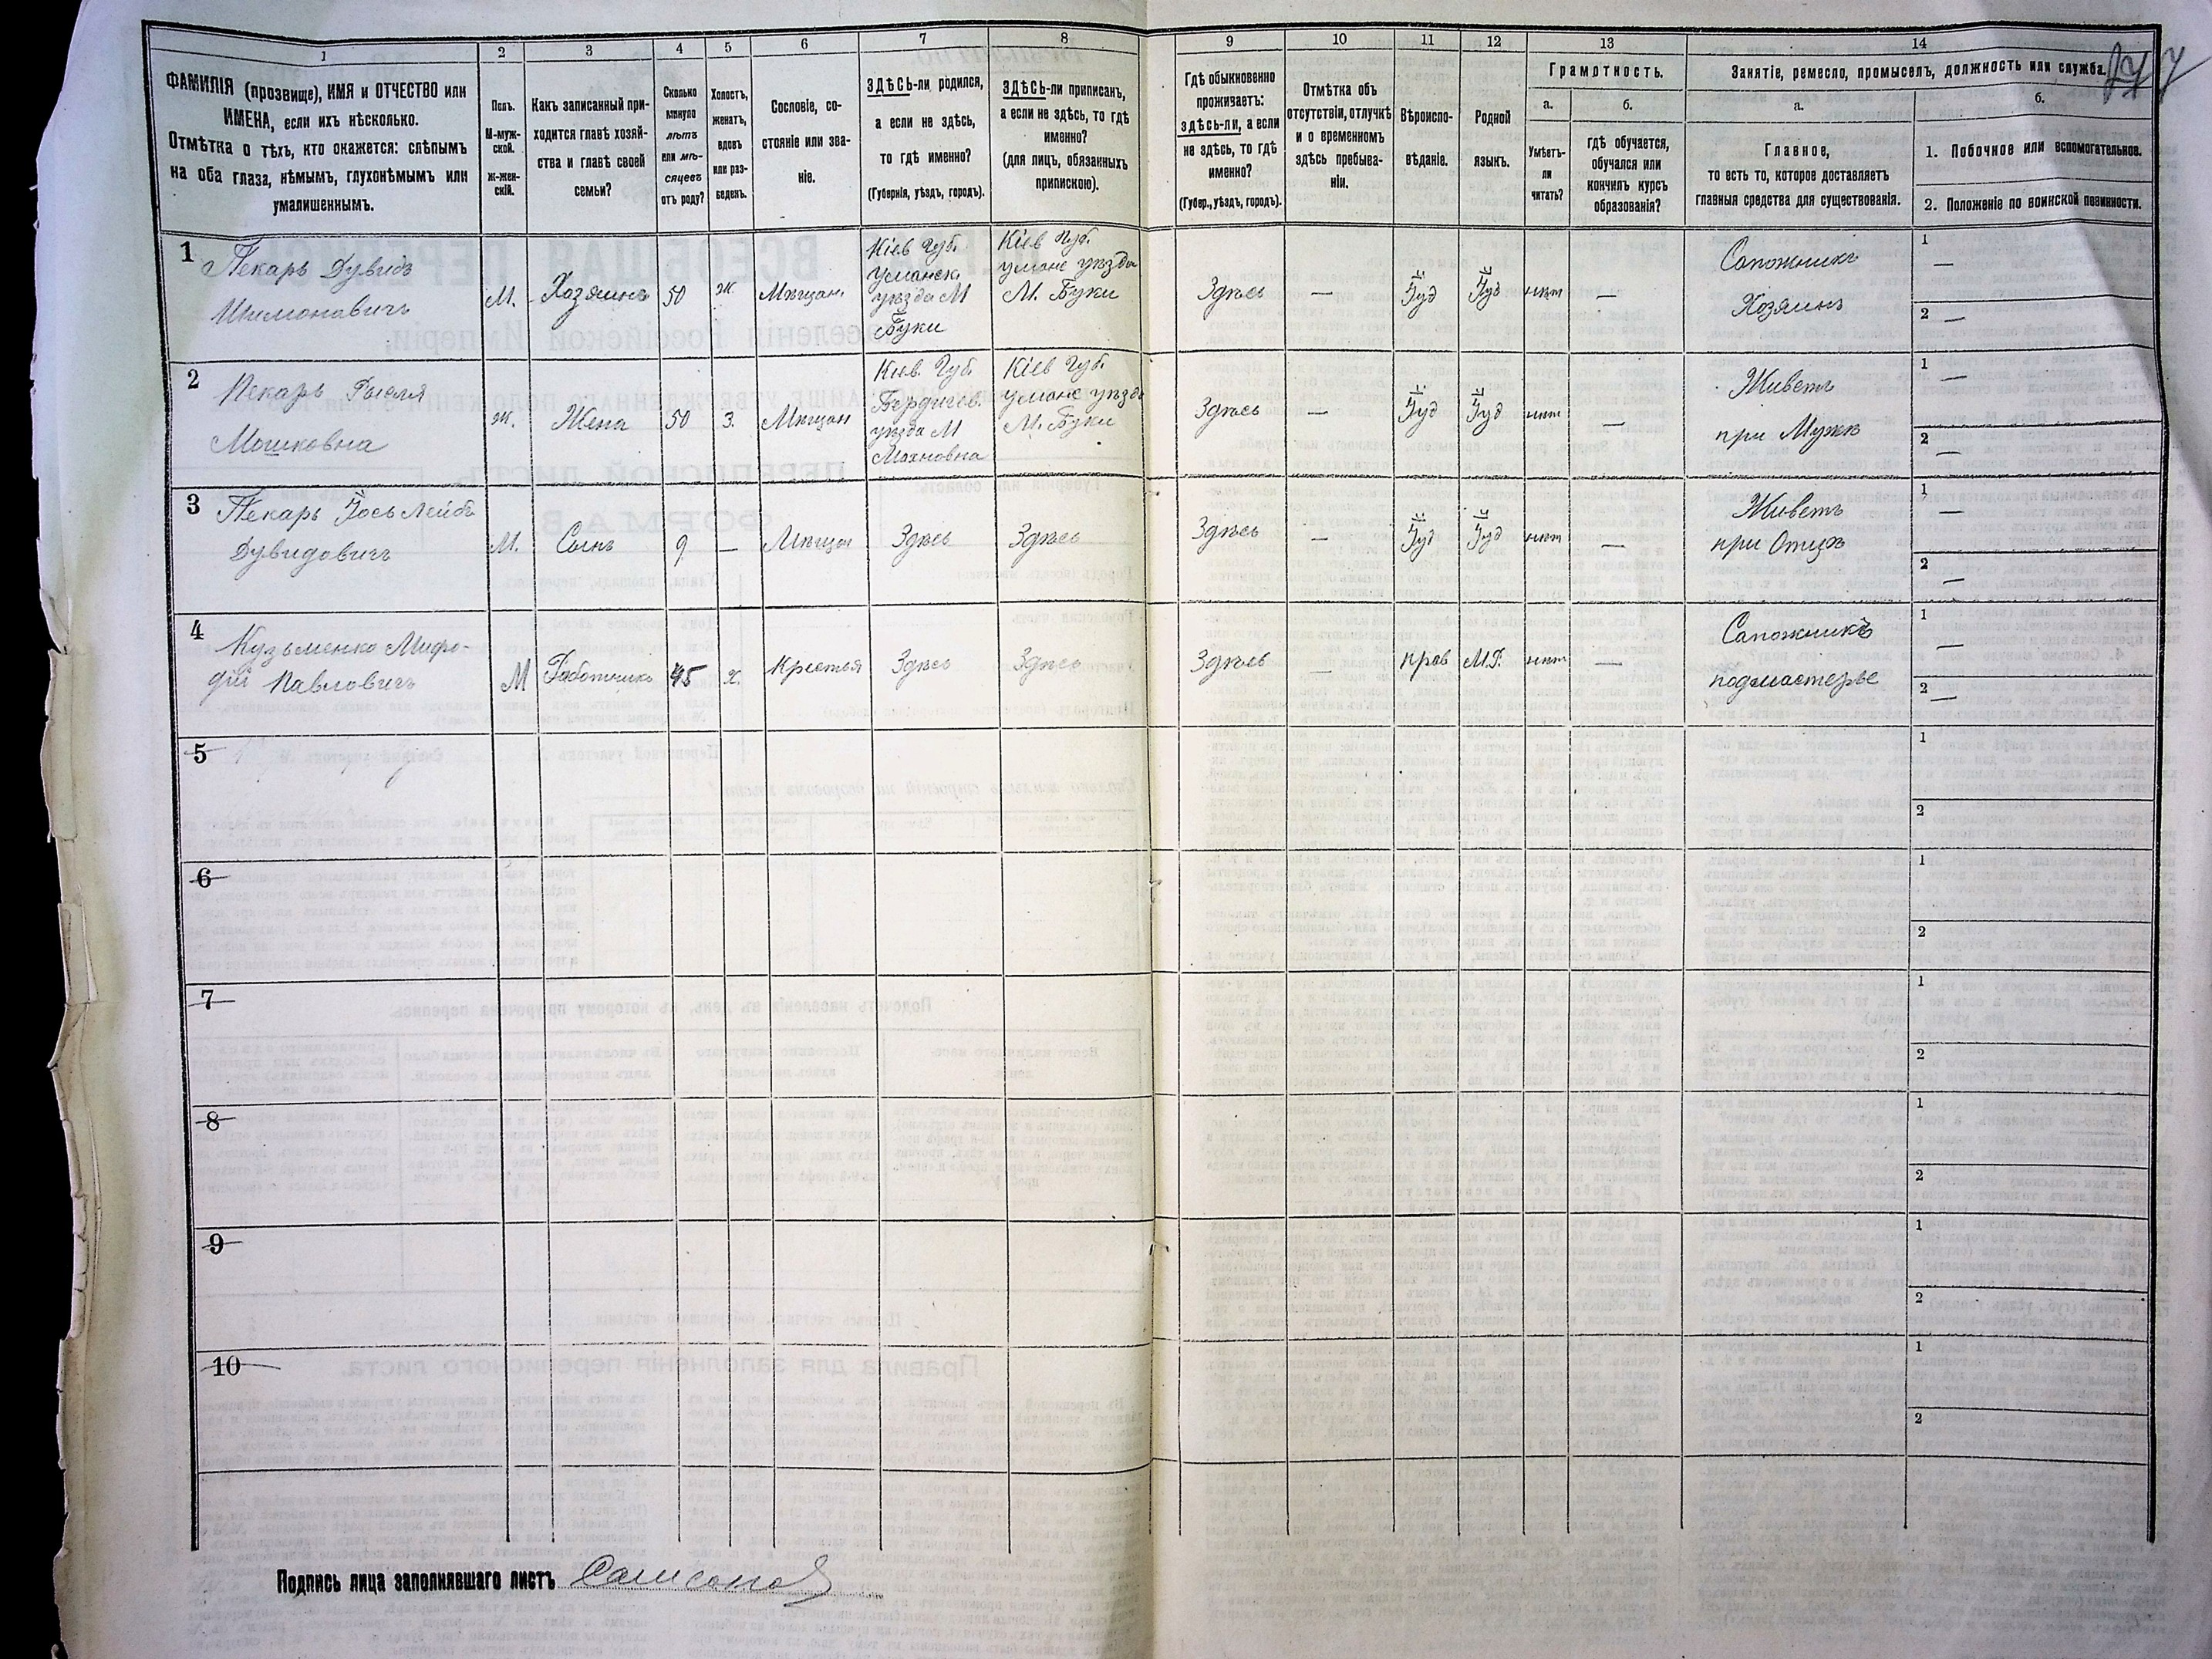 1 2 3 4 5 6 7 8 9 10 11 12 13 14
ФАМИЛІЯ (прозвище), ИМЯ и ОТЧЕСТВО или
ИМЕНА, если ихъ нѣсколько.
Отмѣтка о тѣхъ, кто окажется: слѣпымъ
на оба глаза, нѣмымъ, глухонѣмымъ или
умалишеннымъ.
Полъ.
М-муж-
ской.
ж-жен-
скій.
Какъ записанный при-
ходится главѣ хозяй-
ства и главѣ своей
семьи?
Сколько
минуло
лѣтъ
или мѣ-
сяцевъ
отъ роду?
Холостъ,
женатъ,
вдовъ
или раз-
веденъ.
Сословіе, со-
стояніе или зва-
ніе.
ЗДѢСЬ-ли родился,
а если не здѣсь,
то гдѣ именно?
(Губернія, уѣздъ, городъ).
ЗДѢСЬ-ли приписанъ,
а если не здѣсь, то гдѣ
именно?
(для лицъ, обязанныхъ
припискою).
Гдѣ обыкновенно
проживаетъ:
здѣсь-ли, а если
не здѣсь, то гдѣ
именно?
(Губер., уѣздъ, городъ).
Отмѣтка объ
отсутствіи, отлучкѣ
и о временномъ
здѣсь пребыва-
ніи.
Вѣроиспо-
вѣданіе.
Родной
языкъ.
Грамотность.
а.
Умѣетъ-
ли
читать?
б.
гдѣ обучается,
обучался или
кончилъ курсъ
образованія?
Занятіе, ремесло, промыселъ, должность или служба.
а.
Главное,
то есть то, которое доставляетъ
главныя средства для существованія.
б.
1. Побочное или вспомогательное.
2. Положеніе по воинской повинности.
1
Пекарь Дувидъ
Шимоновичъ
М.
Хозяинъ
50
ж.
Мѣщан.
Кіев Губ.
Уманск
уѣзда М
Буки
Кіев Губ.
уманс уѣзда
М. Буки
Здѣсь
—
Іуд
Іуд
нѣт
—
Сапожникъ
Хозяинъ
1 —
2 —
2
Пекарь Рысля
Мошковна
ж.
Жена
50
З.
Мѣщан
Кіев. Губ.
Бердичев.
уѣзда М
Махновка
Кіев Губ.
уманс уѣзда
М. Буки
Здѣсь
—
Іуд
Іуд
нѣт
—
Живетъ
при Мужѣ
1 —
2 —
3
Пекарь Іось Лейбъ
Дувидовичъ
М.
Сынъ
9
—
Мѣщан
Здѣсь
Здѣсь
Здѣсь
—
Іуд
Іуд
нѣт
—
Живетъ
при Отцѣ
1 —
2 —
4
Кузьменко Мифо-
дій Павловичъ
М
Работникъ
45
х.
Крестья
Здѣсь
Здѣсь
Здѣсь
—
прав
М.Р.
нѣт
—
Сапожникъ
подмастерье
1 —
2 —
5
1
2
6
1
2
7
1
2
8
1
2
9
1
2
10
1
2
Подпись лица заполнявшаго листъ